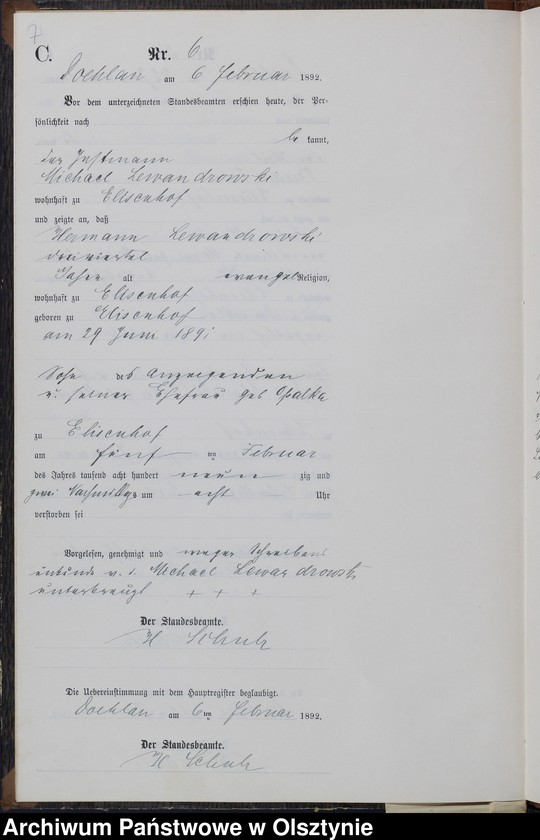 7
C.
Nr. 6
Doehlau am 6 Februar 1892.
Vor dem unterzeichneten Standesbeamten erschien heute, der Per-
sönlichkeit nach
be kannt,
der Instmann
Michael Lewandrowski
wohnhaft zu Elisenhof
und zeigte an, daß
Hermann Lewandrowski
dreiviertel
Jahre alt evangel Religion,
wohnhaft zu Elisenhof
geboren zu Elisenhof
am 29 Juni 1891
Sohn des Anzeigenden
u. seiner Ehefrau geb Opalka
zu Elisenhof
am fünf ten Februar
des Jahres tausend acht hundert neun zig und
zwei Nachmittags um acht Uhr
verstorben sei
Vorgelesen, genehmigt und wegen Schreibens
unkunde v. d. Michael Lewandrowski
unterkreuzt + + +
Der Standesbeamte.
H Schulz
Die Uebereinstimmung mit dem Hauptregister beglaubigt.
Doehlau am 6ten Februar 1892.
Der Standesbeamte.
H Schulz
Archiwum Państwowe w Olsztynie